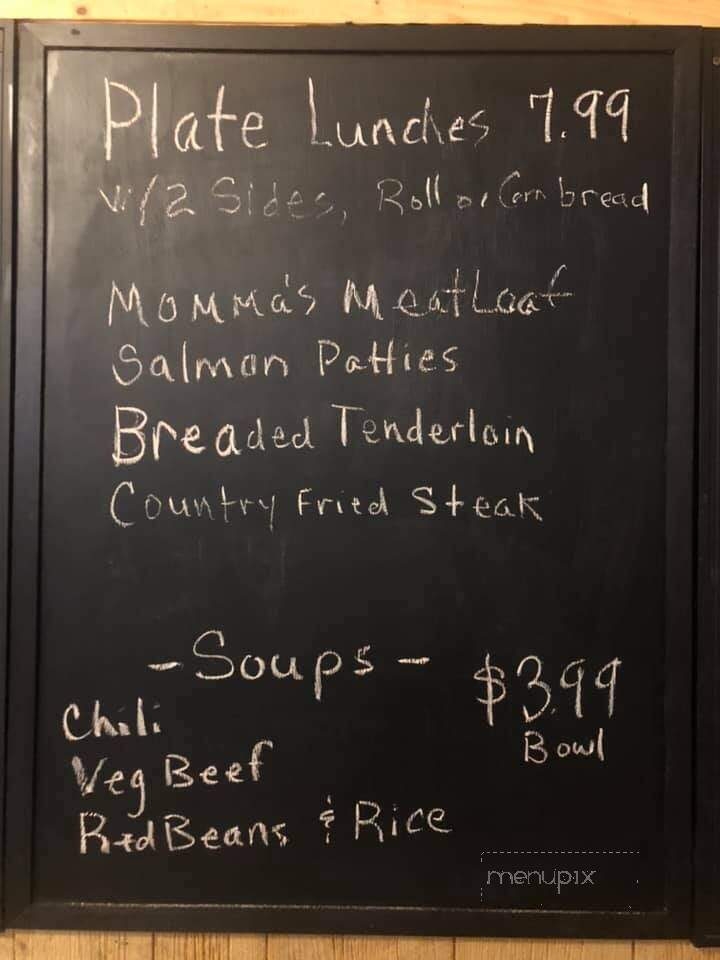 Plate Lunches 7.99
w/2 Sides, Roll or Corn bread
Momma's MeatLoaf
Salmon Patties
Breaded Tenderloin
Country Fried Steak
-Soups- $3.99
Bowl
Chili
Veg Beef
Red Beans & Rice
menupix